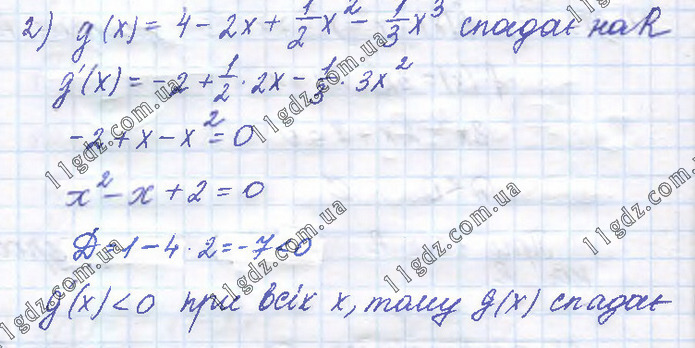 2) g(x) = 4 - 2x + 1/2 x² - 1/3 x³ спадає на R
g'(x) = -2 + 1/2 · 2x - 1/3 · 3x²
-2 + x - x² = 0
x² - x + 2 = 0
Д = 1 - 4 · 2 = -7 < 0
g'(x) < 0 при всіх x, тому g(x) спадає
11gdz.com.ua
11gdz.com.ua
11gdz.com.ua
11gdz.com.ua
11gdz.com.ua
11gdz.com.ua